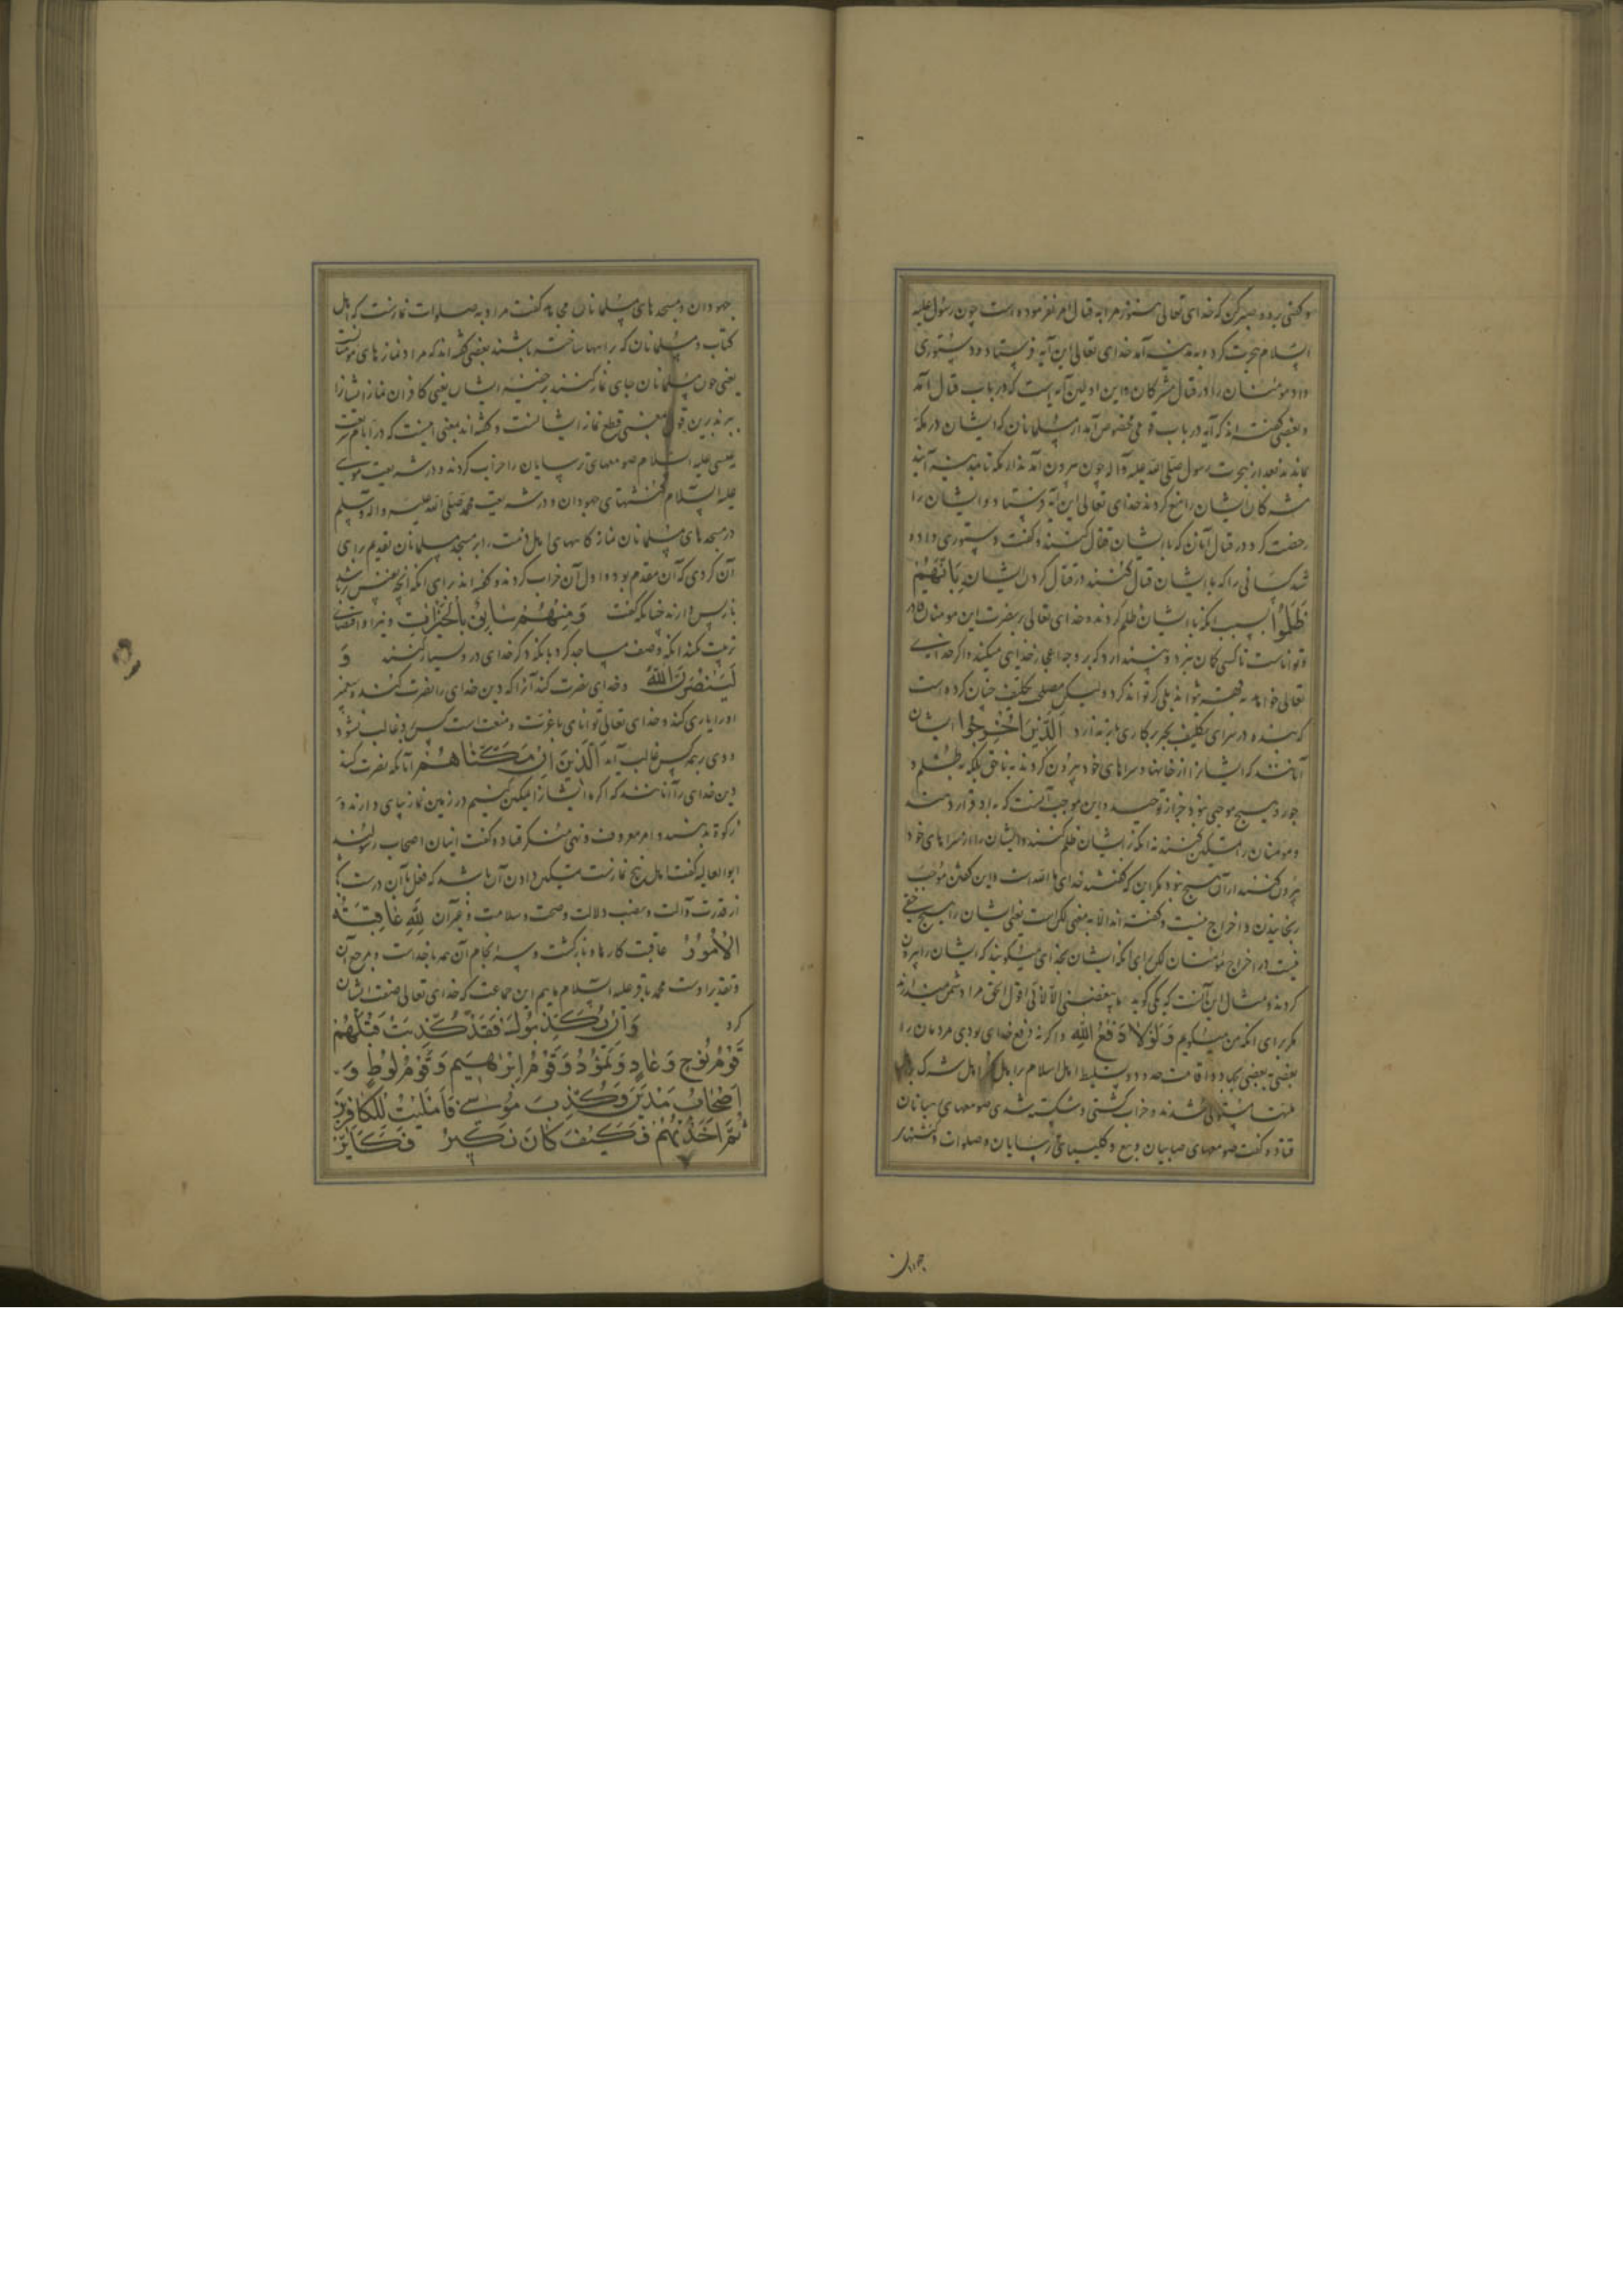 و گفتی برو و صبر کن که خدای تعالی هنوز مرا به قتال امر نفرموده است چون رسول علیه
السلام هجرت کرد و به مدینه آمد خدای تعالی این آیه فرستاد و دستوری
داد مومنان را در قتال مشرکان و این اولین آیه است که در باب قتال آمد
و بعضی گفته‌اند که آیه در باب قومی مخصوص آمد از مسلمانان که ایشان در مکه
بماندند بعد از هجرت رسول صلی الله علیه و آله چون بیرون آمدند از مکه تا بمدینه آیند
مشرکان ایشان را منع کردند خدای تعالی این آیه فرستاد و ایشان را
رخصت کرد در قتال آنان که با ایشان قتال کنند و گفت دستوری داده
شد کسانی را که با ایشان قتال کنند در قتال کردن ایشان بِاَنَّهُمْ
ظُلِمُوا بسبب آنکه با ایشان ظلم کردند و خدای تعالی بر نصرت این مومنان
و تواناست تا کسی گمان نبرد و پندارد که بر وجه اعجاز خدای میکند و اگر خدای
تعالی خواهد به قهر بتواند بلی که تواند کرد ولیکن مصلحت تکلیف چنان کرده است
که بنده در سرای تکلیف بجبر بر کاری باز ندارد اَلَّذِینَ اُخْرِجُوا ایشان
آنانند که ایشانرا از خانها و سراهای خود بیرون کردند به ناحق بلکه به ظلم و
جور و هیچ موجبی نبود جز از توحید و این موجب آنست که به او قرار دهند
و مومنان را تمکین کنند نه آنکه بر ایشان ظلم کنند و ایشان را از سراهای خود
بیرون کنند از آن هیچ نبود مگر این که گفتند خدای ما الله است و این گفتن موجب
رنجانیدن و اخراج نیست و گفته‌اند الا به معنی لکن است یعنی ایشان را هیچ حقی
نیست در اخراج مومنان لکن برای آنکه ایشان بخدای میگویند که ایشان را بیرون
کردند و مثال این آنست که یکی گوید ما یبغضنی الا لانی اقول الحق مرا دشمن میدارند
مگر برای آنکه من حق میگویم وَلَوْلَا دَفْعُ اللهِ و اگر نه دفع خدای بودی مردمان را
بعضی به بعضی بجهاد و اقامت حدود و تسلیط اهل اسلام را بر اهل کفر اهل شرک
مستولی شدند و خراب گشتی و شکسته شدی صومعهای رهبانان
قتاده گفت صومعهای صابیان و بیع و کلیسیاهای ترسایان و صلوات و کنشتهای
جهودان
جهودان و مسجدهای مسلمانان مجاهد گفت مراد به صلوات نمازست که اهل
کتاب و مسلمانان که بر راهها ساخته باشند بعضی گفته‌اند که مراد نمازهای مومنانست
یعنی چون مسلمانان بجای نماز کنند ایشان یعنی کافران نماز ایشانرا
ببرند برین قول معنی قطع نماز ایشانست و گفته‌اند معنی اینست که در ایام شریعت
عیسی علیه السلام صومعهای ترسایان را خراب کردند و در شریعت موسی
علیه السلام کنشتهای جهودان و در شریعت محمد صلی الله علیه و آله و سلم
در مسجدهای مسلمانان نمازگاههای اهل ذمت را بر مسجد مسلمانان تقدیم برای
آن کردی که آن مقدم بود و اول آن خراب کردند و گفته‌اند برای آنکه آنچه
بازپس دارند چنانکه گفت وَمِنْهُمْ سَابِقٌ بِالْخَیْرَاتِ
ترتیب نکند آنکه وصف مساجد کرد بآنکه ذکر خدای در و بسیار کنند وَ
لَیَنْصُرَنَّ اللهُ و خدای نصرت کند آنرا که دین خدای را نصرت کند و پیغمبر
او را یاری کند و خدای تعالی توانای با عزت و منعت است کس برو غالب نشود
و وی بر همه کس غالب آید اَلَّذِینَ اِنْ مَکَّنَّاهُمْ آنانکه نصرت کنند
دین خدای را آنانند که اگر ما ایشانرا تمکین کنیم در زمین نماز بپای دارند و
زکوة بدهند و امر معروف و نهی منکر قتاده گفت اینان اصحاب رسولند
ابوالعالیه گفت اهل پنج نمازست تمکین دادن آن باشد که فعل با آن درست
از قدرت و آلت و نصب دلالت و صحت و سلامت و غیر آن لِلّٰهِ عَاقِبَةُ
الْاُمُورُ عاقبت کارها و بازگشت و سرانجام آن همه با خداست و مرجع آن
و تقدیر اوست محمد باقر علیه السلام ماییم این جماعت که خدای تعالی صفت ایشان
کرد وَاِنْ یُکَذِّبُوکَ فَقَدْ کَذَّبَتْ قَبْلَهُمْ
قَوْمُ نُوحٍ وَعَادٍ وَثَمُودُ وَقَوْمُ اِبْرٰهِیمَ وَقَوْمُ لُوطٍ وَ
اَصْحَابُ مَدْیَنَ وَکُذِّبَ مُوسٰی فَاَمْلَیْتُ لِلْکَافِرِینَ
ثُمَّ اَخَذْتُهُمْ فَکَیْفَ کَانَ نَکِیرُ فَکَاَیِّنْ